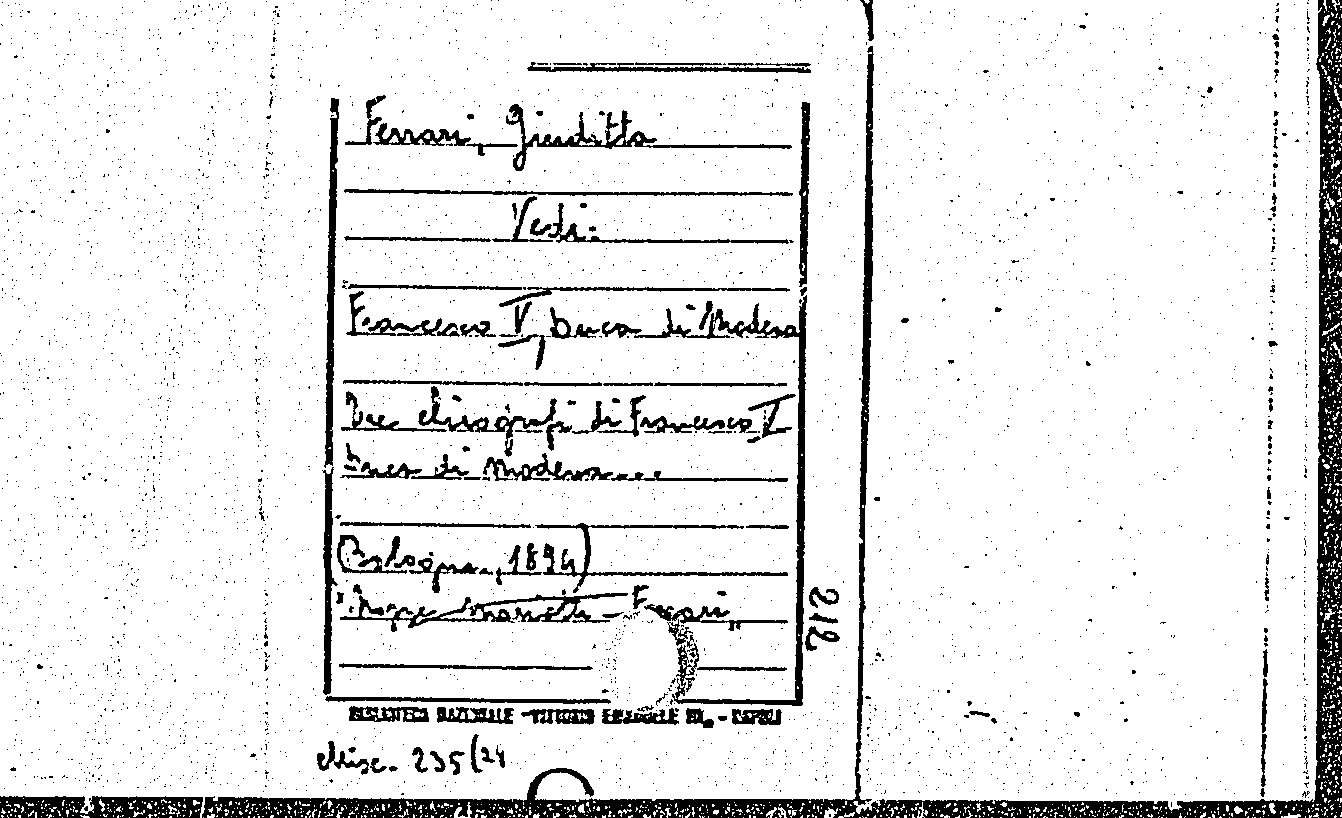 Ferrari, Giuditta
Vedi:
Francesco V, Duca di Modena
Due chirografi di Francesco V
Duca di Modena...
(Bologna, 1894)
"Nozze Mariotti - Ferrari"
212
BIBLIOTECA NAZIONALE - VITTORIO EMANUELE III - NAPOLI
Misc. 235(24